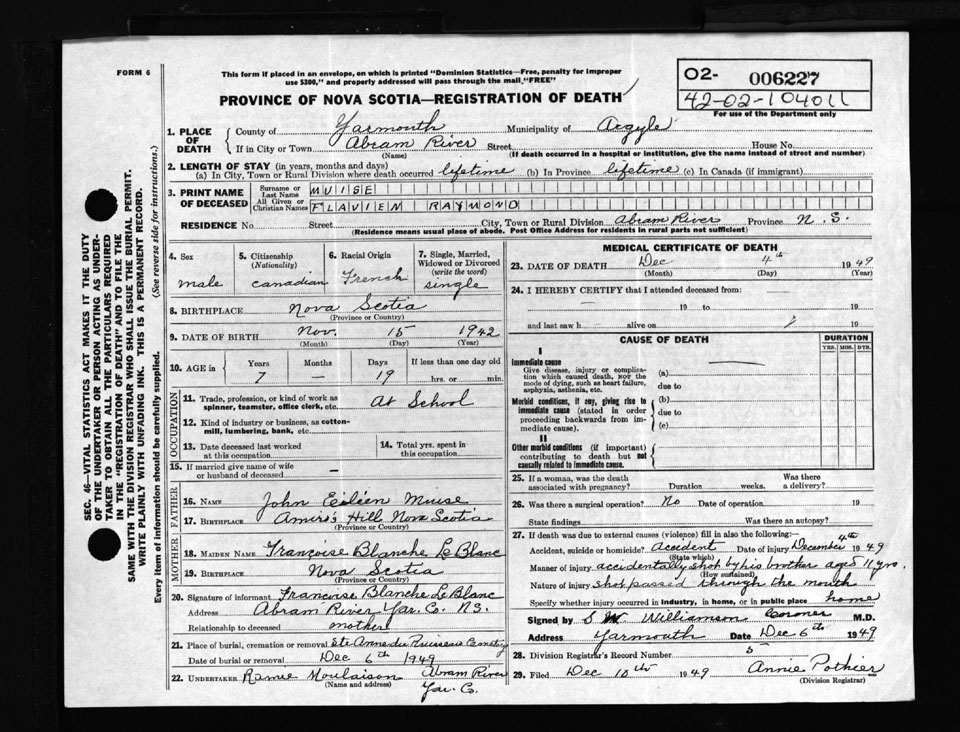 FORM 6
This form if placed in an envelope, on which is printed "Dominion Statistics—Free, penalty for improper
use $300," and properly addressed will pass through the mail "FREE"
PROVINCE OF NOVA SCOTIA—REGISTRATION OF DEATH
02- 006227
42-02-104011
For use of the Department only
SEC. 46—VITAL STATISTICS ACT MAKES IT THE DUTY
OF THE UNDERTAKER OR PERSON ACTING AS UNDER-
TAKER TO OBTAIN ALL THE PARTICULARS REQUIRED
IN THE "REGISTRATION OF DEATH" AND TO FILE THE
SAME WITH THE DIVISION REGISTRAR WHO SHALL ISSUE THE BURIAL PERMIT.
WRITE PLAINLY WITH UNFADING INK. THIS IS A PERMANENT RECORD.
Every item of information should be carefully supplied. (See reverse side for instructions.)
1. PLACE OF DEATH
County of Yarmouth Municipality of Argyle
If in City or Town Abram River Street House No
(Name) (If death occurred in a hospital or institution, give the name instead of street and number)
2. LENGTH OF STAY (in years, months and days)
(a) In City, Town or Rural Division where death occurred lifetime (b) In Province lifetime (c) In Canada (if immigrant)
3. PRINT NAME OF DECEASED
Surname or Last Name MUISE
All Given or Christian Names FLAVIEN RAYMOND
RESIDENCE No Street City, Town or Rural Division Abram River Province N.S.
(Residence means usual place of abode. Post Office Address for residents in rural parts not sufficient)
4. Sex male
5. Citizenship (Nationality) canadian
6. Racial Origin French
7. Single, Married, Widowed or Divorced (write the word) single
8. BIRTHPLACE Nova Scotia
(Province or Country)
9. DATE OF BIRTH Nov. 15 1942
(Month) (Day) (Year)
10. AGE in Years Months Days If less than one day old
7 19 hrs. or min.
OCCUPATION
11. Trade, profession, or kind of work as
spinner, teamster, office clerk, etc. At School
12. Kind of industry or business, as cotton-
mill, lumbering, bank, etc.
13. Date deceased last worked
at this occupation
14. Total yrs. spent in
this occupation
15. If married give name of wife
or husband of deceased —
FATHER
16. NAME John Muise
17. BIRTHPLACE Amiro's Hill Nova Scotia
(Province or Country)
MOTHER
18. MAIDEN NAME Françoise Blanche Le Blanc
19. BIRTHPLACE Nova Scotia
(Province or Country)
20. Signature of informant Francoise Blanche Le Blanc
Address Abram River Yar. Co. N.S.
Relationship to deceased mother
21. Place of burial, cremation or removal Ste Anne du Ruisseau Cemetery
Date of burial or removal Dec 6th 1949
22. UNDERTAKER Moulaison Abram River
(Name and address) Yar. Co.
MEDICAL CERTIFICATE OF DEATH
23. DATE OF DEATH Dec 4th 1949
(Month) (Day) (Year)
24. I HEREBY CERTIFY that I attended deceased from:
— 19 to — 19
and last saw h — alive on 19
CAUSE OF DEATH
DURATION
YRS. MOS. DYS.
I
Immediate cause
Give disease, injury or complica-
tion which caused death, NOT the
mode of dying, such as heart failure,
asphyxia, asthenia, etc.
(a) —
due to
Morbid conditions, if any, giving rise to
immediate cause (stated in order
proceeding backwards from im-
mediate cause).
(b)
due to
(c)
II
Other morbid conditions (if important)
contributing to death but not
causally related to immediate cause.
25. If a woman, was the death
associated with pregnancy? Duration weeks. Was there
a delivery?
26. Was there a surgical operation? No Date of operation 19
State findings Was there an autopsy?
27. If death was due to external causes (violence) fill in also the following:—
Accident, suicide or homicide? accident Date of injury December 4th 1949
(State which)
Manner of injury accidentally shot by his brother aged 11 yrs.
(How sustained)
Nature of injury shot passed through the mouth
Specify whether injury occurred in industry, in home, or in public place home
Signed by S W Williamson Coroner M.D.
Address Yarmouth Date Dec 6th 1949
28. Division Registrar's Record Number 5
29. Filed Dec 10th 1949 Annie Pothier
(Division Registrar)